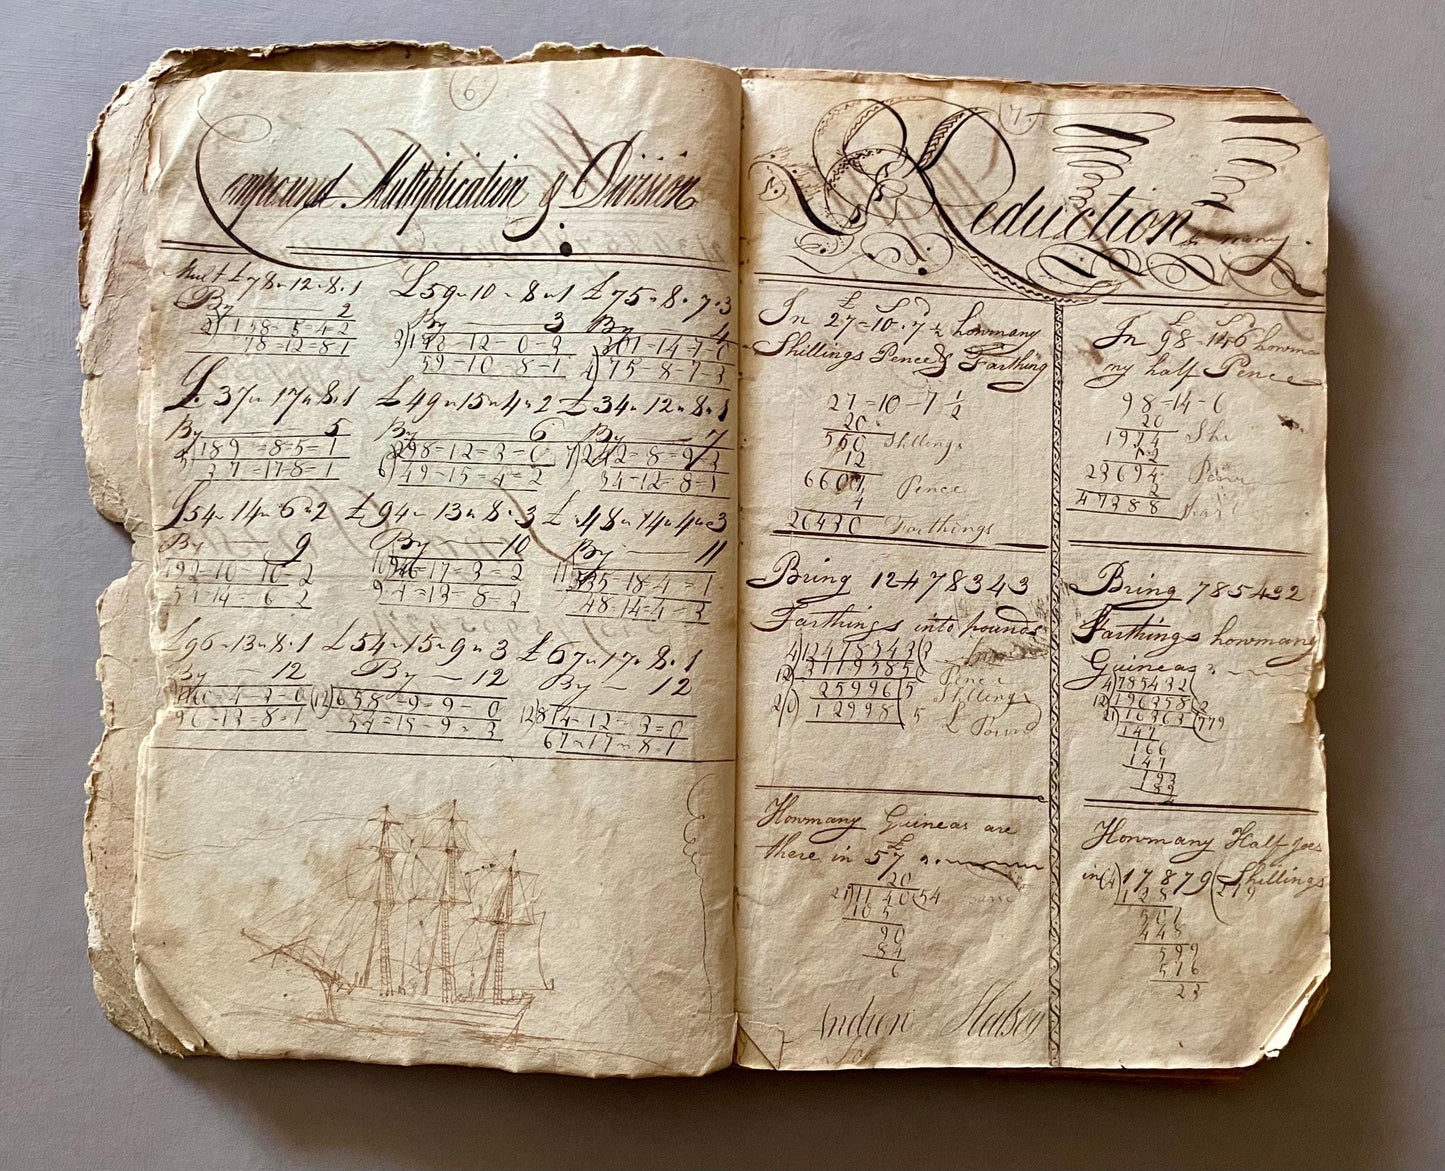 6
Compound Multiplication & Division
Mult £78 " 12 " 8 " 1
By 2
2) 158 = 5 = 4 2
78 - 12 = 8 1
£59 " 10 " 8 " 1
By 3
59 - 10 - 8 - 1
£75 " 8 " 7 " 3
By 4
301 - 14 - 7 - 0
4) 75 - 8 - 7 - 3
£37 " 17 " 8 " 1
By 5
5) 189 = 8 = 5 - 1
37 = 17 - 8 - 1
£49 " 15 " 4 " 2
By 6
6) 298 - 12 - 3 - 0
49 - 15 - 4 = 2
£34 " 12 " 8 " 1
By 7
7) 242 = 8 = 9 - 3
34 - 12 - 8 - 1
£54 " 14 " 6 " 2
By 9
492 - 10 - 10 - 2
54 - 14 - 6 2
£94 " 13 " 8 " 3
By 10
10) 946 - 17 = 3 = 2
94 - 13 - 8 - 3
£48 " 14 " 4 " 3
By 11
11) 535 - 18 - 4 = 1
48 - 14 - 4 - 3
£96 " 13 " 8 " 1
By 12
96 - 13 - 8 - 1
£54 " 15 " 9 " 3
By 12
12) 658 = 9 = 9 - 0
54 = 15 - 9 = 3
£67 " 17 " 8 " 1
By 12
12) 814 - 12 - 3 = 0
67 " 17 " 8 " 1
7
Reduction
£ S D
In 27 = 10 " 7 ½ howmany
Shillings Pence & Farthing
27 = 10 - 7 ½
20
550 Shillings
12
6607 Pence
4
26430 Farthings
£ S D
In 98 - 14 6 howma
ny half Pence
98 - 14 - 6
20
1974 Shi
12
23694 Pence
2
47388
Bring 12478343
Farthings into pounds
4) 12478343 (3
12) 3119585
Pence
2(0) 25996 (5 Shillings
12998 ( 5 £ Pound
Bring 785432
Farthings howmany
Guineas
4) 785432
12) 196358 (2
21) 16363 (779
147
166
147
193
189
4
Howmany Guineas are
£
there in 57
20
21) 1140 (54
105
90
84
6
Howmany Half Joes
in
64) 17879 Shillings
(279
128
507
448
599
576
23
Andrew Halsey